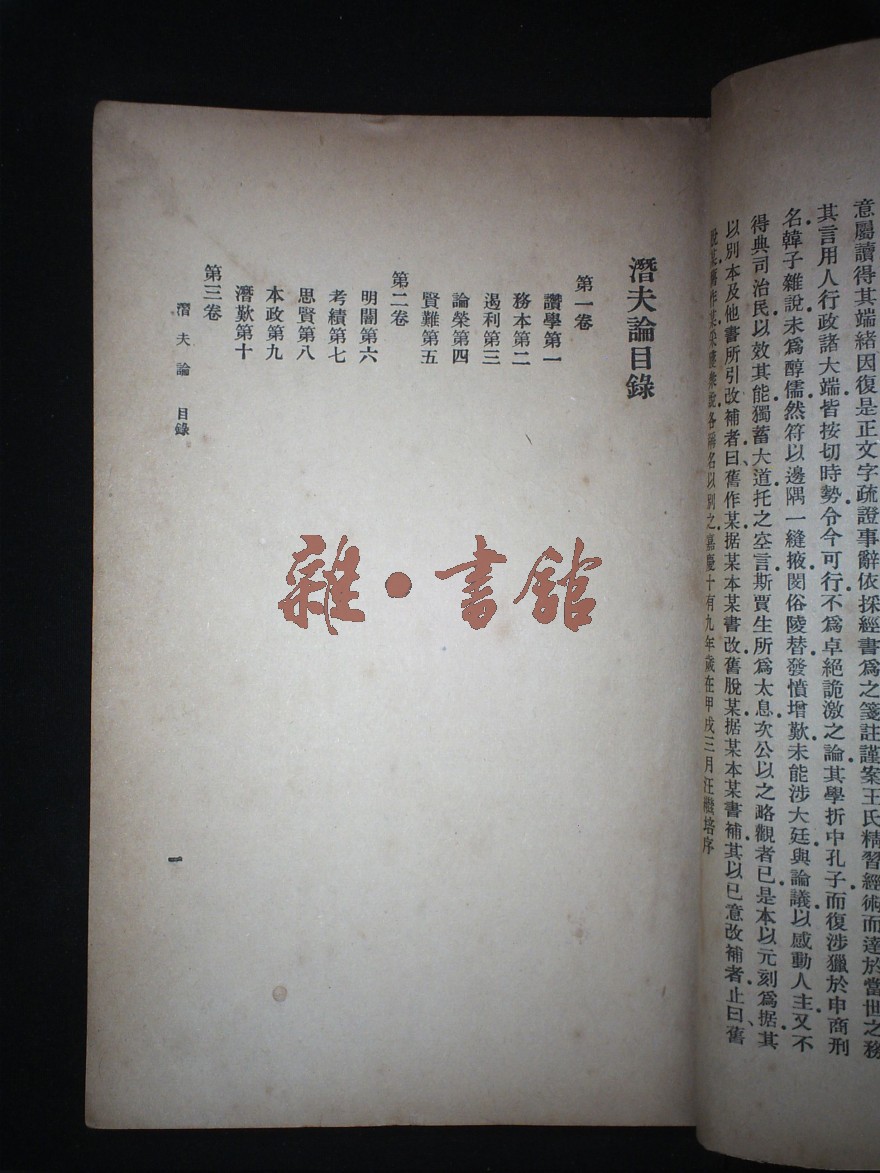 意屬讀得其端緒因復是正文字疏證事辭依採經書爲之箋註謹案王氏精習經術而達於當世之務
其言用人行政諸大端皆按切時勢令今可行不爲卓絕詭激之論其學折中孔子而復涉獵於申商刑
名韓子雜說未爲醇儒然符以邊隅一縫掖閔俗陵替發憤增歎未能涉大廷與論議以感動人主又不
得典司治民以效其能獨蓄大道托之空言斯賈生所爲太息次公以之略觀者已是本以元刻爲据其
以別本及他書所引改補者曰舊作某据某本某書改舊脫某据某本某書補其以已意改補者止曰舊
脫某舊作某采獲衆說各稱名以別之嘉慶十有九年歲在甲戌三月汪繼培序
潛夫論目錄
第一卷
讚學第一
務本第二
遏利第三
論榮第四
賢難第五
第二卷
明闇第六
考績第七
思賢第八
本政第九
潛歎第十
第三卷
潛夫論 目錄
一
雜·書館